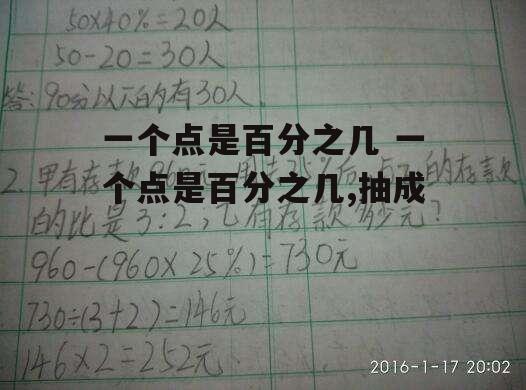 50×40%=20人
50-20=30人
答:90分以下的有30人。
一个点是百分之几 一
个点是百分之几,抽成
2.甲有存款960元,用去25%后,与乙的存款
的比是3:2,乙有存款多少元?
960-(960×25%)=730元
730÷(3+2)=146元
146×2=252元
2016-1-17 20:02